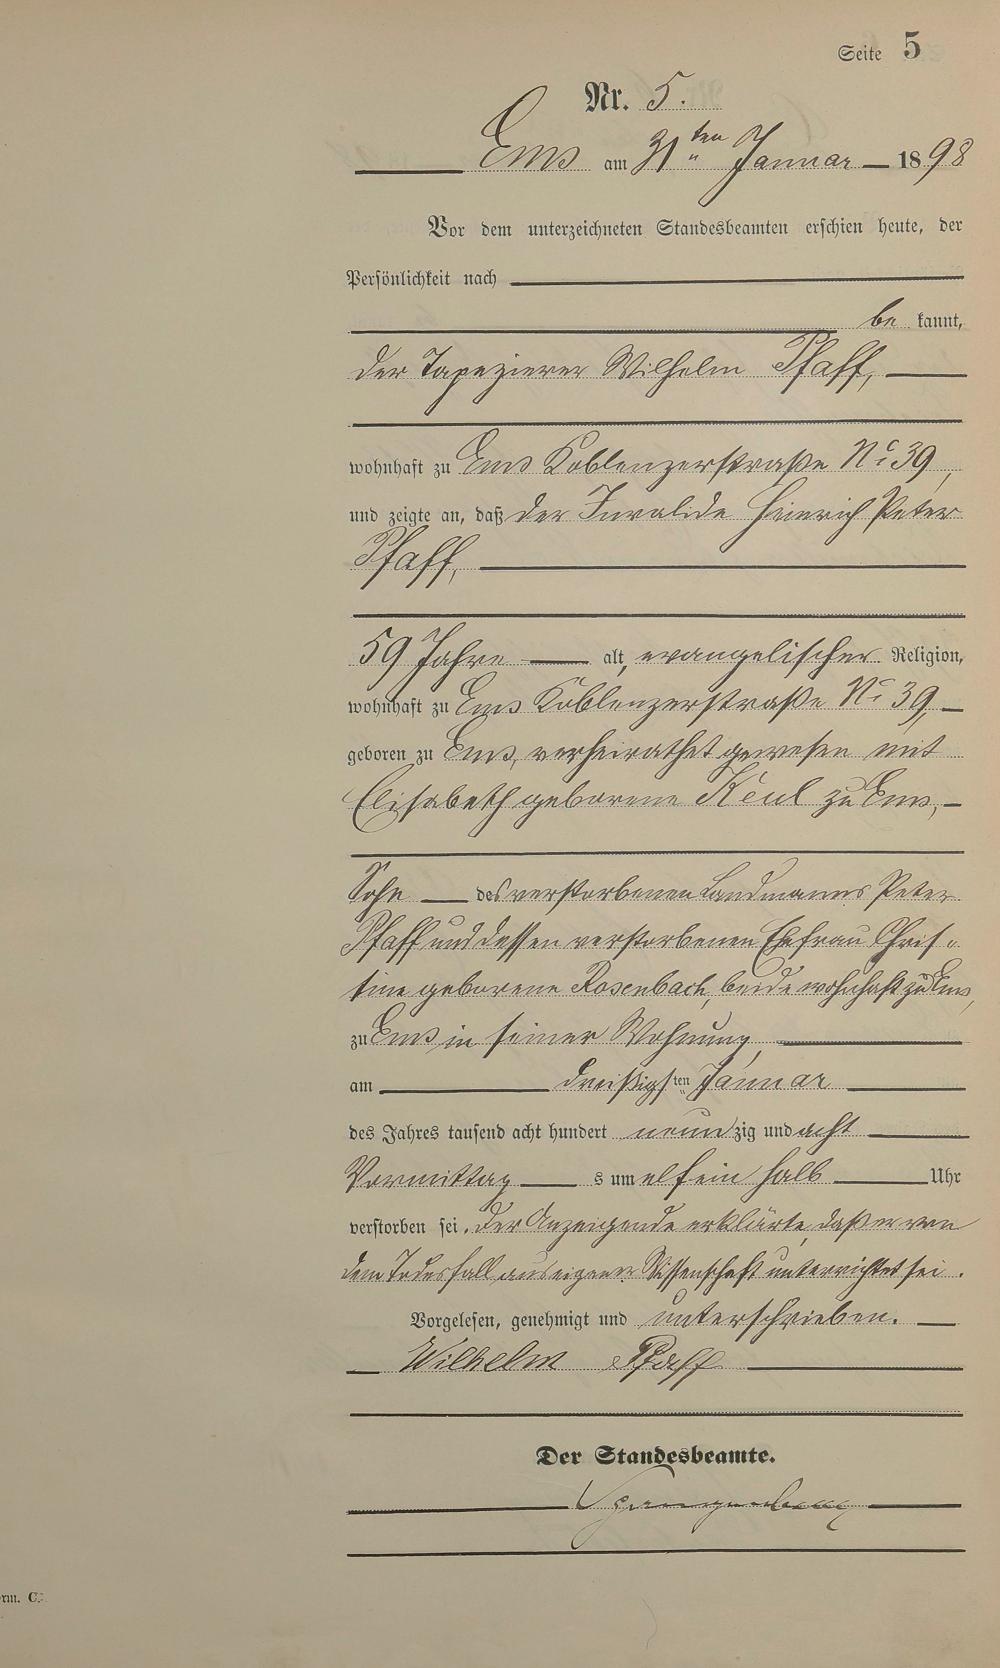 Seite 5
Nr. 5.
Ems am 31ten Januar 1898
Vor dem unterzeichneten Standesbeamten erschien heute, der
Persönlichkeit nach
be kannt,
der Tapezierer Wilhelm Pfaff,
wohnhaft zu Ems Koblenzerstraße No 39,
und zeigte an, daß der Invalide Heinrich Peter
Pfaff,
59 Jahre alt, evangelischer Religion,
wohnhaft zu Ems Koblenzerstraße No 39,
geboren zu Ems, verheirathet gewesen mit
Elisabeth geborene Keul zu Ems,
Sohn des verstorbenen Landmanns Peter
Pfaff und dessen verstorbenen Ehefrau Chris-
tine geborene Rosenbach, beide wohnhaft zu Ems,
zu Ems in seiner Wohnung,
am dreißigsten Januar
des Jahres tausend acht hundert neunzig und acht
Vormittags um elf ein halb Uhr
verstorben sei. Der Anzeigende erklärte, daß er von
dem Todesfall aus eigener Wissenschaft unterrichtet sei.
Vorgelesen, genehmigt und unterschrieben.
Wilhelm Pfaff
Der Standesbeamte.
rm. C.